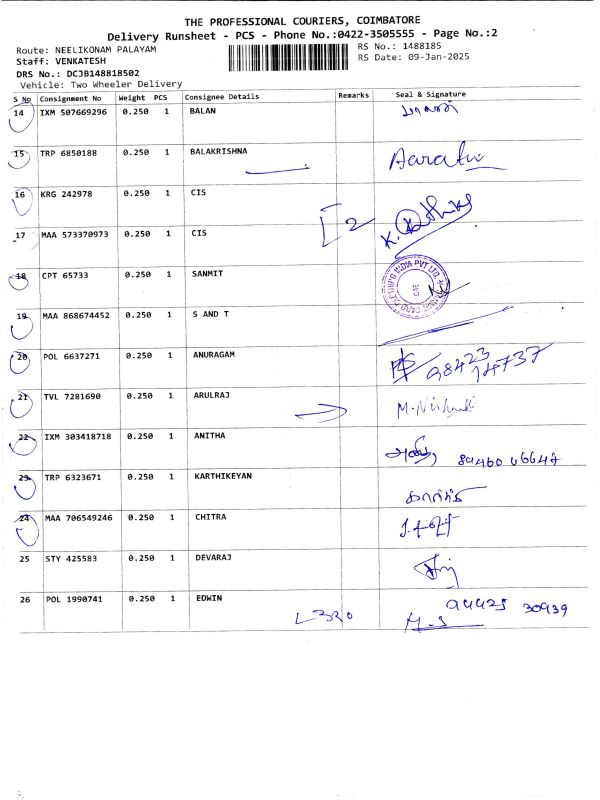 THE PROFESSIONAL COURIERS, COIMBATORE
Delivery Runsheet - PCS - Phone No.:0422-3505555 - Page No.:2
Route: NEELIKONAM PALAYAM
RS No.: 1488185
Staff: VENKATESH
RS Date: 09-Jan-2025
DRS No.: DCJB148818502
Vehicle: Two Wheeler Delivery
S No Consignment No Weight PCS Consignee Details Remarks Seal & Signature
14 IXM 507669296 0.250 1 BALAN பாலன்
15 TRP 6850188 0.250 1 BALAKRISHNA
16 KRG 242978 0.250 1 CIS
17 MAA 573370973 0.250 1 CIS 2
18 CPT 65733 0.250 1 SANMIT
19 MAA 868674452 0.250 1 S AND T
20 POL 6637271 0.250 1 ANURAGAM 98423 14737
21 TVL 7281690 0.250 1 ARULRAJ
22 IXM 303418718 0.250 1 ANITHA
23 TRP 6323671 0.250 1 KARTHIKEYAN
24 MAA 706549246 0.250 1 CHITRA
25 STY 425583 0.250 1 DEVARAJ
26 POL 1990741 0.250 1 EDWIN